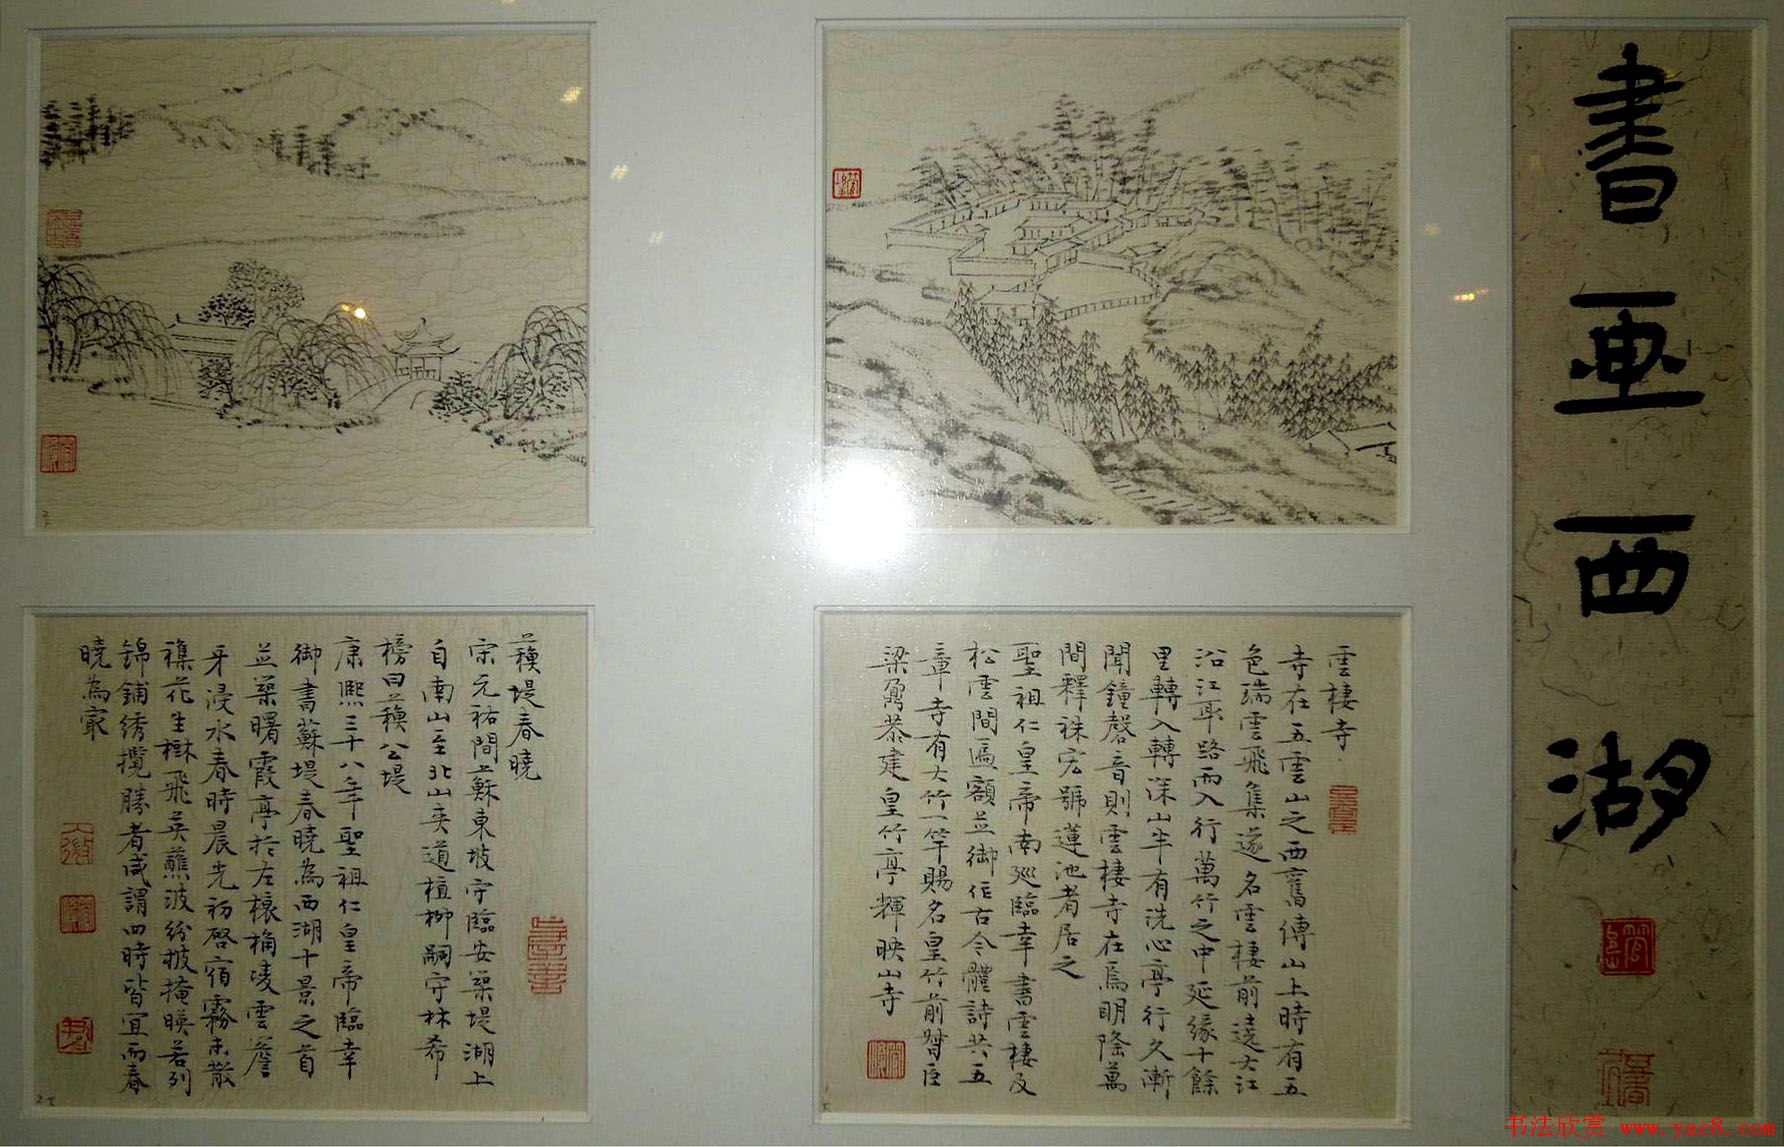 書画西湖
雲棲寺
寺在五雲山之西舊傳山上時有五
色瑞雲飛集遂名雲棲前遶大江
沿江取路而入行萬竹之中延緣十餘
里轉入轉深山半有洗心亭行久漸
聞鐘磬音則雲棲寺在焉明隆萬
間釋袾宏號蓮池者居之
聖祖仁皇帝南巡臨幸書雲棲及
松雲間匾額並御作古今體詩共五
章寺有大竹一竿賜名皇竹前督臣
梁鼐恭建皇竹亭輝映山寺
蘇堤春曉
宋元祐間蘇東坡守臨安築堤湖上
自南山至北山夾道植柳嗣守林希
榜曰蘇公堤
康熙三十八年聖祖仁皇帝臨幸
御書蘇堤春曉為西湖十景之首
並築曙霞亭於左榱桷凌雲簷
牙浸水春時晨光初啓宿霧未散
襍花生樹飛英蘸波紛披掩映若列
錦鋪绣攬勝者咸謂四時皆宜而春
曉為冣
书法欣赏 www.yac8.com